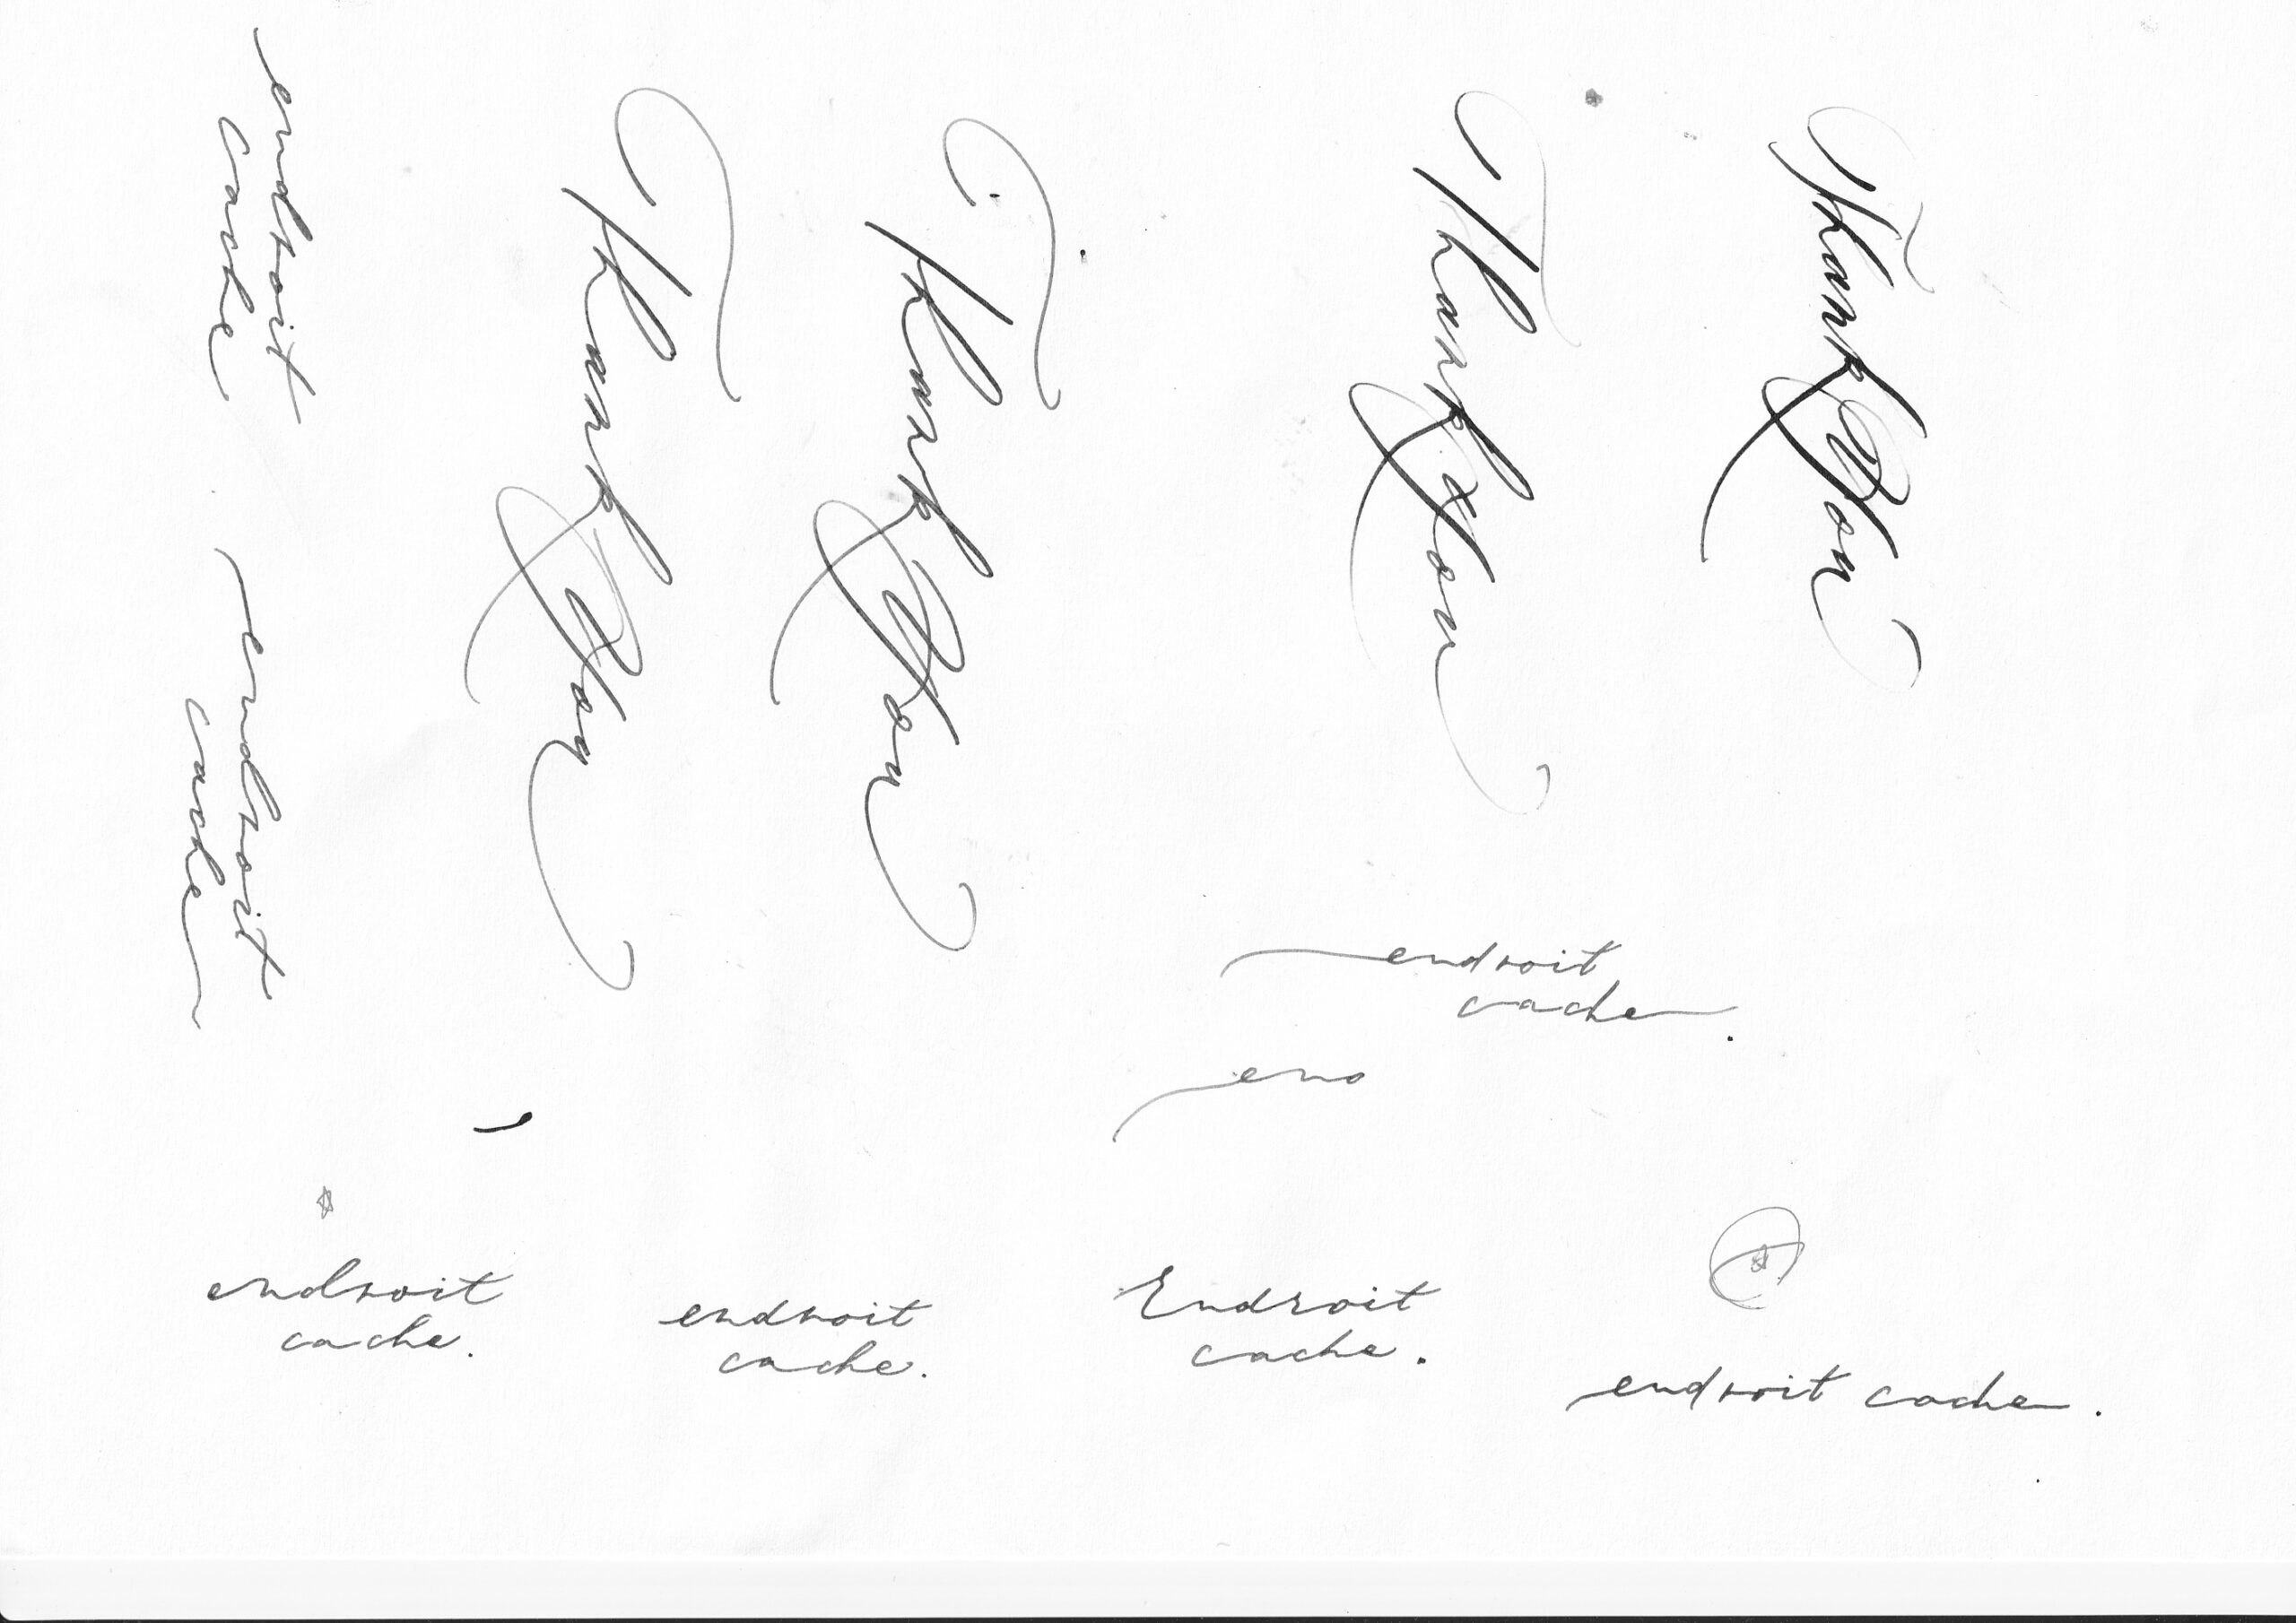 endroit
cache
endroit
cache
Thank You
Thank You
Thank You
Thank You
endroit
cache.
eno
endroit
cache.
endroit
cache.
Endroit
cache.
endroit cache.